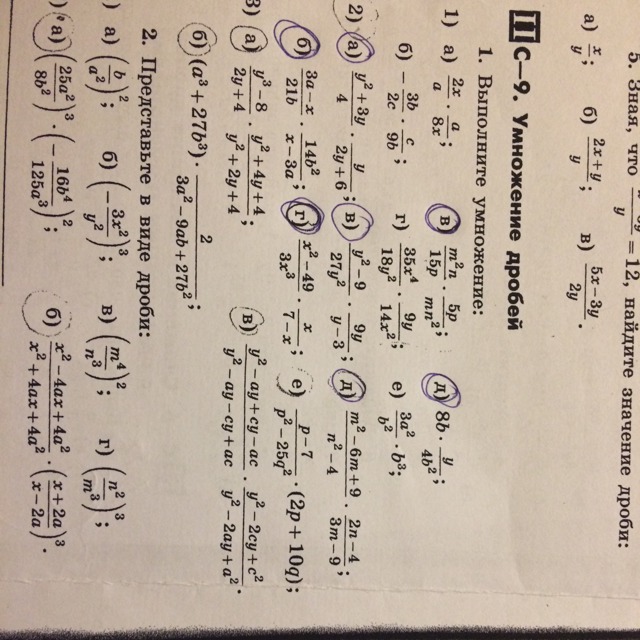 5. Зная, что y = 12, найдите значение дроби:
а) x/y; б) (2x + y)/y; в) (5x − 3y)/2y.
II С–9. Умножение дробей
1. Выполните умножение:
1) а) 2x/a · a/8x; в) m²n/15p · 5p/mn²; д) 8b · y/4b²;
б) −3b/2c · c/9b; г) 35x⁴/18y² · 9y/14x²; е) 3a²/b² · b³;
2) а) (y² + 3y)/4 · y/(2y + 6); в) (y² − 9)/27y² · 9y/(y − 3); д) (m² − 6m + 9)/(n² − 4) · (2n − 4)/(3m − 9);
б) (3a − x)/21b · 14b²/(x − 3a); г) (x² − 49)/3x³ · x/(7 − x); е) (p − 7)/(p² − 25q²) · (2p + 10q);
3) а) (y³ − 8)/(2y + 4) · (y² + 4y + 4)/(y² + 2y + 4); в) (y² − ay + cy − ac)/(y² − ay − cy + ac) · (y² − 2cy + c²)/(y² − 2ay + a²).
б) (a³ + 27b³) · 2/(3a² − 9ab + 27b²);
2. Представьте в виде дроби:
) а) (b/a²)²; б) (−3x²/y²)³; в) (m⁴/n³)²; г) (n²/m³)³;
) а) (25a²/8b²)³ · (−16b⁴/125a³)²; б) (x² − 4ax + 4a²)/(x² + 4ax + 4a²) · ((x + 2a)/(x − 2a))³.